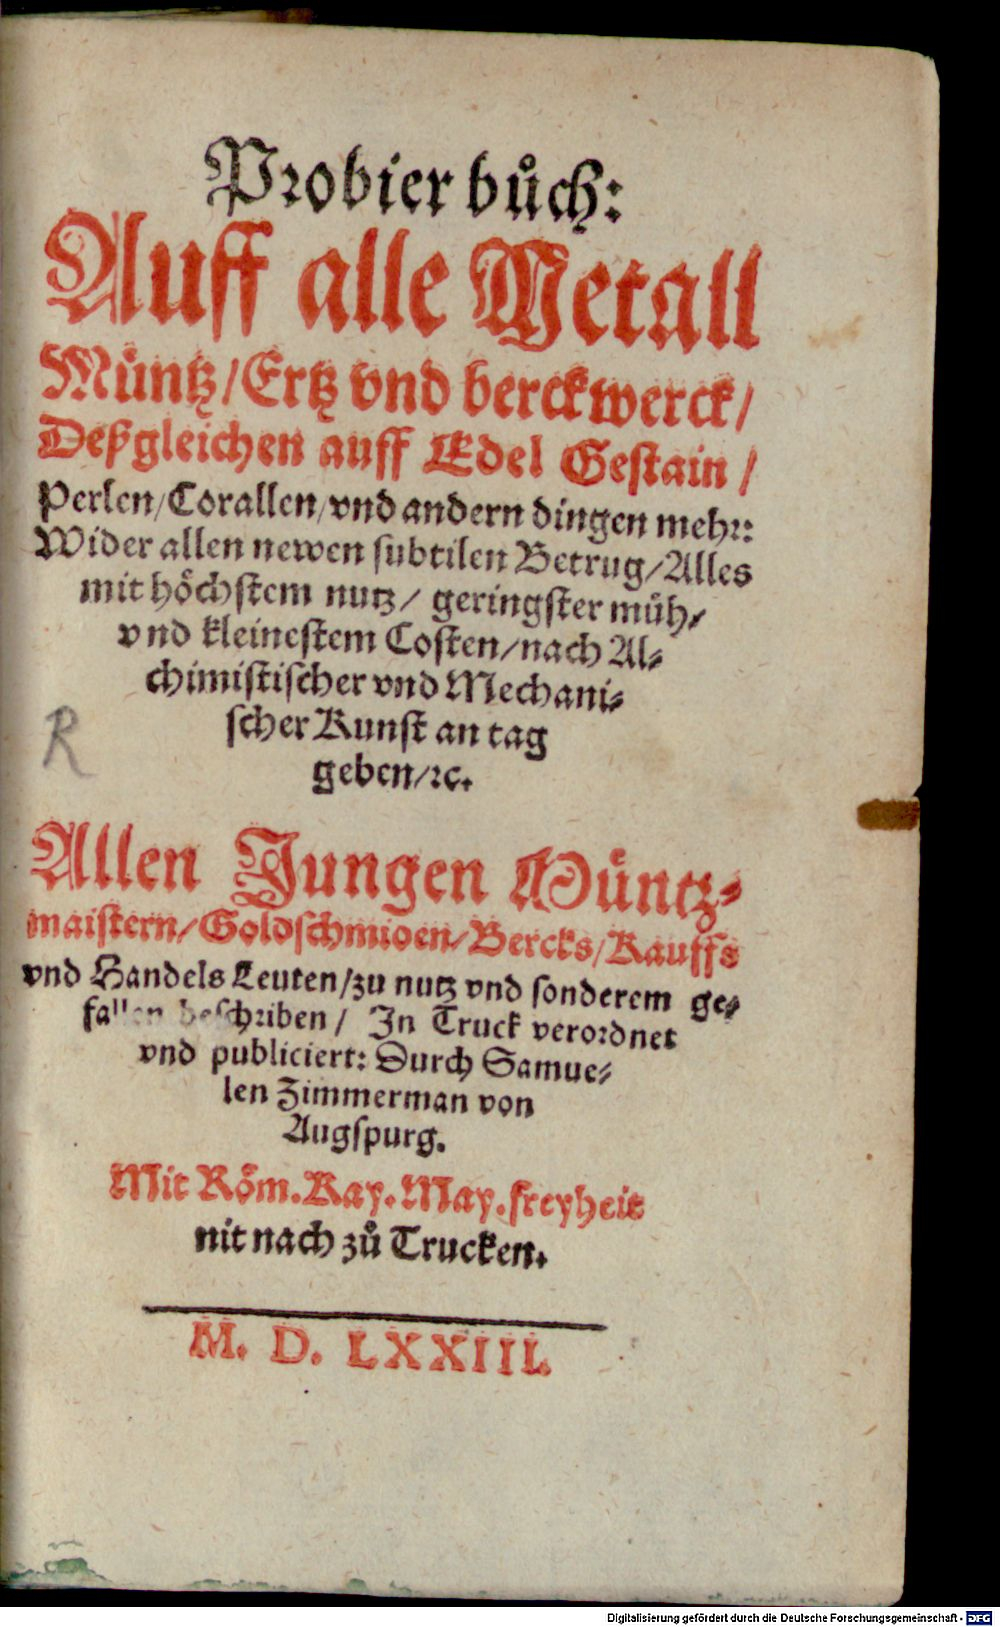 Probier bůch:
Auff alle Metall
Müntz/Ertz vnd berckwerck/
Deßgleichen auff Edel Gestain/
Perlen/Corallen/vnd andern dingen mehr:
Wider allen newen subtilen Betrug/Alles
mit höchstem nutz/ geringster müh/
vnd kleinestem Costen/nach Al⸗
chimistischer vnd Mechani⸗
scher Kunst an tag
geben/ꝛc.
R
Allen Jungen Müntz⸗
maistern/Goldschmiden/Bercks/Kauffs
vnd Handels Leuten/zu nutz vnd sonderem ge⸗
fallen beschriben/ In Truck verordnet
vnd publiciert: Durch Samue⸗
len Zimmerman von
Augspurg.
Mit Röm. Kay. May. freyheit
nit nach zů Trucken.
M. D. LXXIIII.
Digitalisierung gefördert durch die Deutsche Forschungsgemeinschaft - DFG